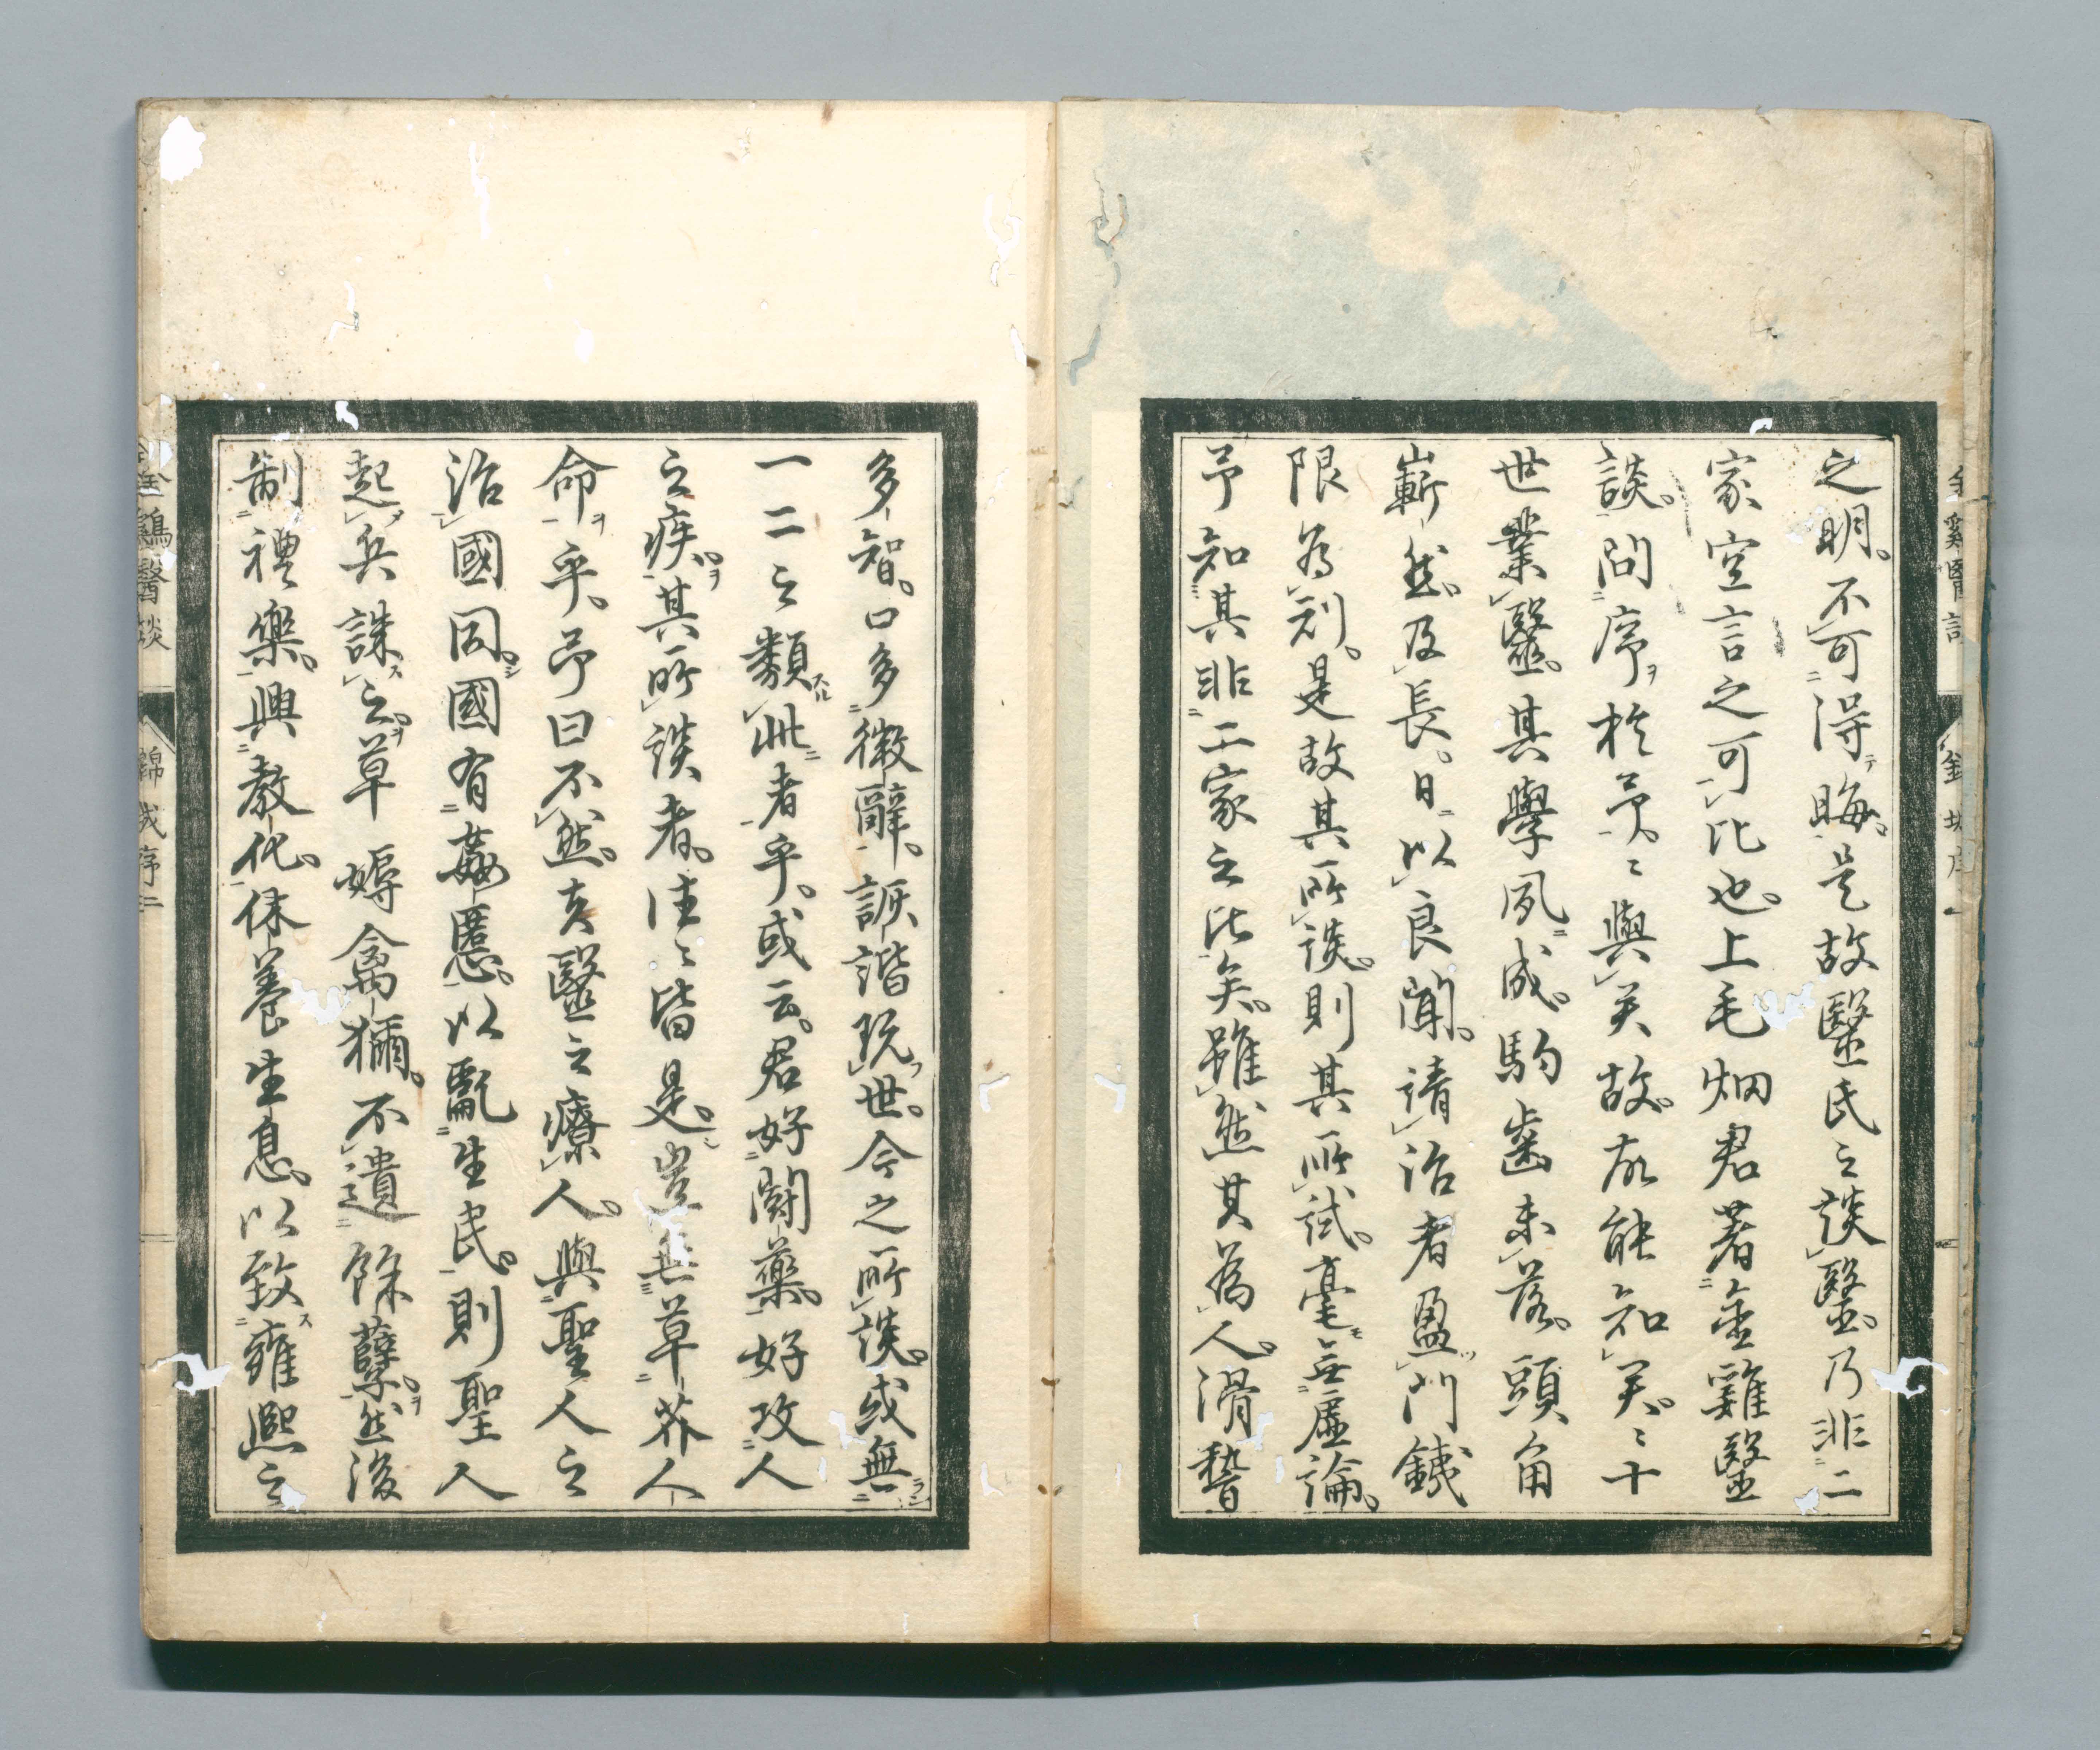 之明。不可得晦。是故醫氏之談醫。乃非二
家空言之可比也。上毛畑君著金雞醫
談。問序於予。予與羙故。故能知羙。羙十
世業醫。其學夙成。駒齒未落。頭角
嶄然。及長。日以良聞。請治者盈門。鐵
限為刓。是故其所談。則其所試。毫無虛論。
予知其非二家之比矣。雖然其為人。滑稽
多智。口多微辭。詼諧玩世。今之所談。或無
一二之類此者乎。或云。君好鬪藥。好攻人
之疾。其所談者。往往皆是。豈無草芥人
命乎。予曰不然。夫醫之療人。與聖人之
治國同。國有姦慝。以亂生民。則聖人
起兵誅之。草薅禽獮。不遺餘孽。然後
制禮樂。興教化。休養生息。以致雍熙之
金鷄醫談 錦城序 二